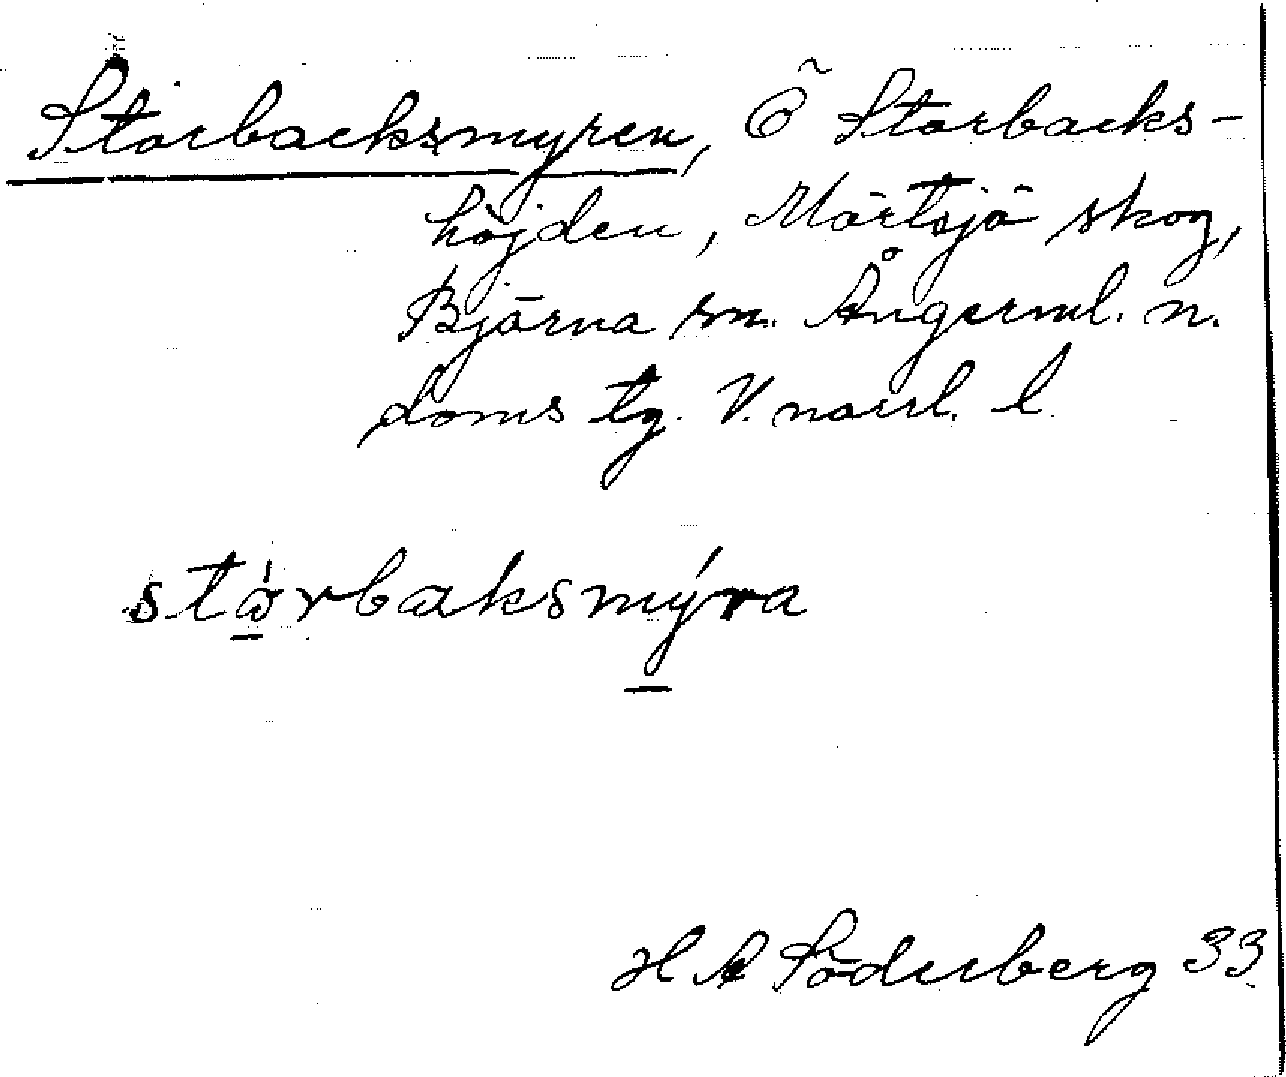 Storbacksmyren, Ö Storbacks-
höjden, Mörtsjö skog,
Björna sn. Ångerml. n.
doms tg. V. norrl. l.
stórbaksmýra
H A Söderberg 33